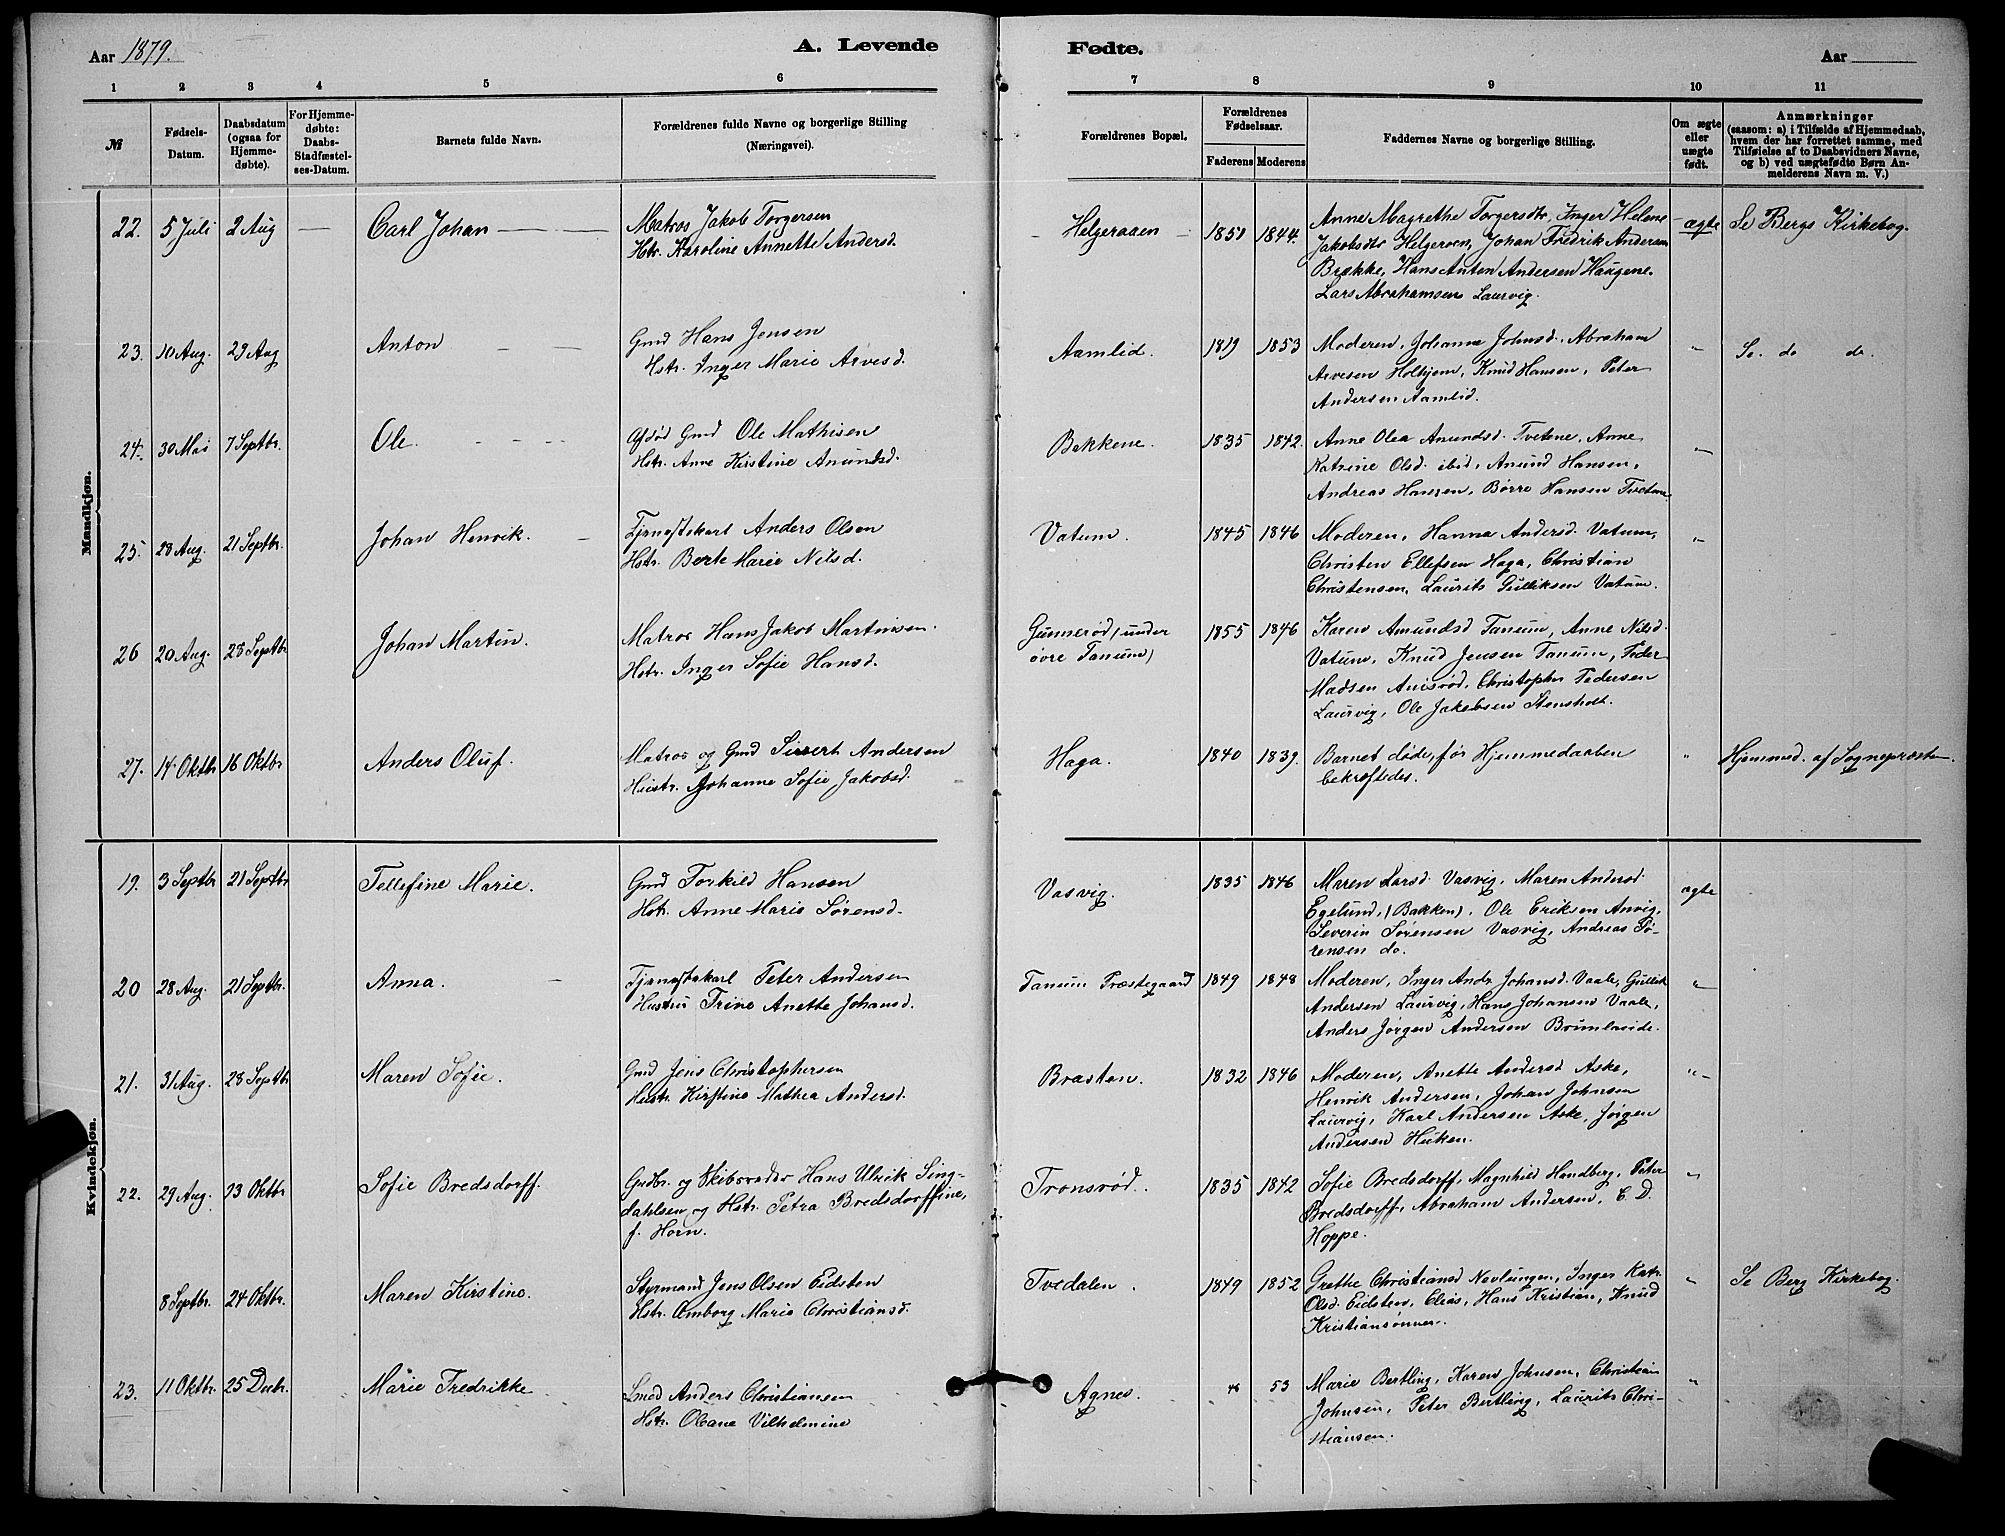 Aar 1879.
A. Levende Fødte.
Aar
1 2 3 4 5 6 7 8 9 10 11
№
Fødsels-Datum.
Daabsdatum (ogsaa for Hjemmedøbte).
For Hjemmedøbte: Daabs-Stadfæstelses-Datum.
Barnets fulde Navn.
Forældrenes fulde Navne og borgerlige Stilling (Næringsvei).
Forældrenes Bopæl.
Forældrenes Fødselsaar.
Faderens Moderens
Faddernes Navne og borgerlige Stilling.
Om ægte eller uægte født.
Anmærkninger
(saasom: a) i Tilfælde af Hjemmedaab, hvem der har forrettet samme, med Tilføielse af to Daabsvidners Navne, og b) ved uægtefødte Børn Anmelderens Navn m. V.)
Mandkjøn.
22. 5 Juli 2 Aug Carl Johan
Matros Jakob Torgersen
Hstr. Karoline Annette Andersd.
Helgeraaen 1851 1844.
Anne Magrethe Torgersdtr, Inger Helene
Jakobsdtr Helgeroen, Johan Fredrik Andersen
Brække, Hans Anton Andersen Haugene.
Lars Abrahamsen Laurvig.
ægte Se Bergs Kirkebog.
23. 10 Aug. 29 Aug Anton
Gmd Hans Jensen
Hstr. Inger Marie Arvesd.
Aamlid. 1819 1853
Moderen, Johanne Johnsd., Abraham
Arvesen Holhjem, Knud Hansen, Peter
Andersen Aamlid.
" Se. do do.
24. 30 Mai 7 Septbr. Ole.
Afdød Gmd Ole Mathisen
Hstr. Anne Kirstine Anundsd.
Bakkene. 1835 1842.
Anne Olea Anundsd. Tvetene, Anne
Katrine Olsd. ibid, Anund Hansen,
Andreas Hansen, Børre Hansen Tvetene
"
25. 28 Aug. 21 Septbr. Johan Henrik.
Tjenestekarl Anders Olsen
Hstr. Berte Marie Nilsd.
Vatum. 1845 1846
Moderen, Hanna Andersd. Vatum,
Christen Ellefsen Haga, Christian
Christensen, Laurits Gulliksen Vatum.
"
26 20 Aug. 28 Septbr Johan Martin.
Matros Hans Jakob Martinsen.
Hstr. Inger Sofie Hansd.
Gunnerød (under
øvre Tanum) 1855 1846
Karen Amundsd Tanum, Anne Nilsd.
Vatum, Knud Jensen Tanum, Peder
Madsen Anisrød, Christopher Pedersen
Laurvig, Ole Jakobsen Stensholt.
27. 14 Oktbr 16 Oktbr Anders Oluf.
Matros og Gmd Sivert Andersen
Hustr. Johanne Sofie Jakobsd.
Haga. 1840 1839.
Barnet døde, før Hjemmedaaben
bekræftedes.
" Hjemmed. af Sognepræsten.
Kvindekjøn.
19. 3 Septbr 21 Septbr Tellefine Marie.
Gmd Torkild Hansen
Hstr. Anne Marie Sørensd.
Vasvig. 1835 1846
Maren Larsd. Vasvig, Maren Andersd.
Egelund, (Bakken), Ole Eriksen Anvig,
Severin Sørensen Vasvig, Andreas Sø-
rensen do.
ægte
20 28 Aug. 21 Septbr. Anna.
Tjenestekarl Peter Andersen
Hustru Trine Anette Johansd.
Tanum Præstegaard 1849 1848
Moderen, Inger Andr. Johansd. Vaale, Gullik
Andersen Laurvig, Hans Johansen Vaale,
Anders Jørgen Andersen Brunlaside.
"
21. 31 Aug. 28 Septbr Maren Sofie.
Gmd Jens Christophersen
Hustr. Kirstine Mathea Andersd.
Bræsten. 1832 1846
Moderen, Anette Andersd Aske,
Henrik Andersen, Johan Johnsen
Laurvig, Karl Andersen Aske, Jørgen
Andersen Huken.
"
22. 29 Aug. 23 Oktbr Sofie Bredsdorff.
Gmdbr. og Skibsreder Hans Ulrik Sing-
dahlsen og Hstr. Petra Bredsdorffine,
f. Horn.
Tronsrød. 1835 1842
Sofie Bredsdorff, Magnhild Handberg, Peter
Bredsdorff, Abraham Andersen, E. D.
Hoppe.
"
8 Septbr. 24 Oktbr. Maren Kirstine.
Styrmand Jens Olsen Eidsten
Hstr. Amborg Marie Christiansd.
Tvedalen. 1849 1852
Grethe Christiansd Nevlungen, Inger Katr.
Olsd. Eidsten, Elias, Hans Kristian, Knud
Kristiansønner.
" Se Berg Kirkebog.
23. 11 Oktbr. 25 Decbr. Marie Fredrikke
Smed Anders Christiansen
Hstr. Oleane Vilhelmine
Agnes. 48 53
Marie Bertling, Karen Johnsen, Christian
Johnsen, Peter Bertling, Laurits Chri-
stiansen.
"